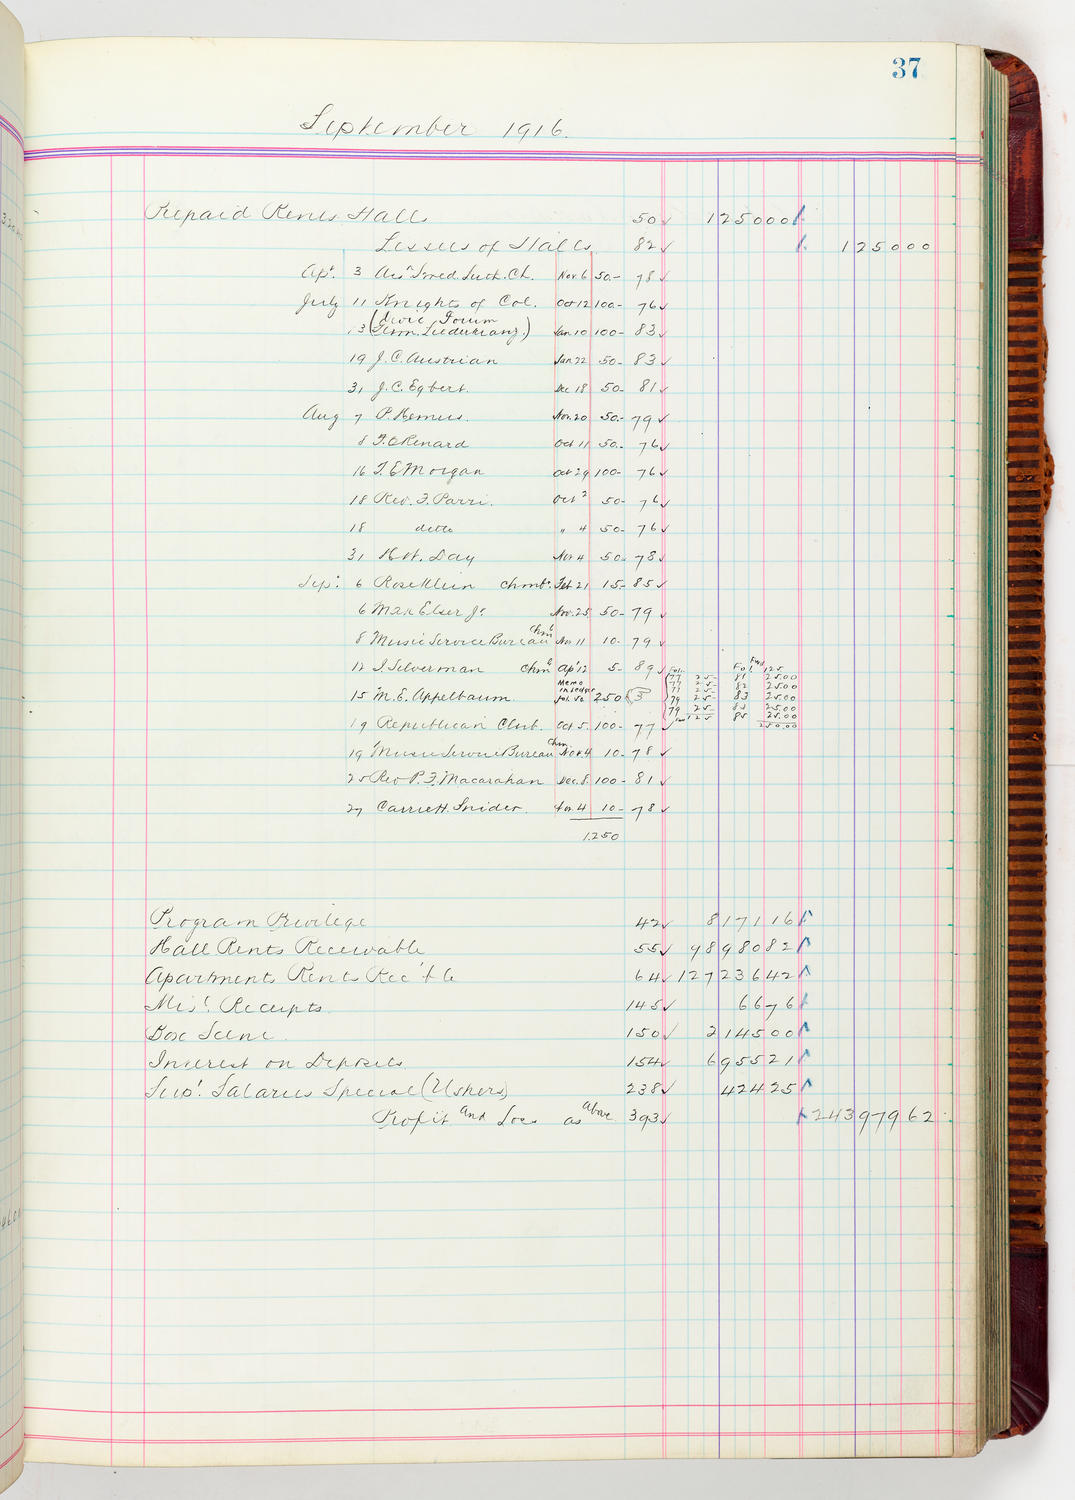 37
September 1916.
Prepaid Rents Halls 50✓ 125000
Lessees of Halls 82✓ 125000
Apr. 3 Luth. Ch. Nov. 6 50.- 78✓
July 11 Knights of Col. Oct 12 100- 76✓
(Civic Forum
13 ) Jan 10 100- 83✓
19 J.C. Austrian Jan 22 50- 83✓
31 J.C. Egbert. Dec 18 50- 81✓
Aug 7 P. Nov. 20 50.- 79✓
8 Renard Oct 11 50.- 76✓
16 Morgan Oct 29 100- 76✓
18 Rev. F. Parri. Oct 2 50- 76✓
18 ditto " 4 50- 76✓
31 Day Nov 4 50- 78✓
Sep. 6 Rose Klein chmbr. Feb 21 15- 85✓
6 Max Elser Jr Nov. 25 50- 79✓
8 Music Service Bureau Chmb Nov 11 10- 79✓
12 Silverman Chmb Ap'12 5- 89✓
Fol. Fol. Fwd 125
77 25- 81 25.00
77 25- 82 25.00
77 25- 83 25.00
79 25- 25.00
79 25- 85 25.00
125 250.00
15 M.E. Appelbaum Memo in Ledger fol. 250
19 Republican Club. Oct 5. 100- 77✓
19 Music Service Bureau Chm. Nov. 4 10- 78✓
25 Rev P.F. Macarahan Dec. 8 100- 81✓
27 Carrie H. Snider. 4 10- 78✓
1.250
Program Privilege 42✓ 817116
Hall Rents Receivable 55✓ 9898082
Apartments Rents Rec'ble 64✓ 12723642
Mis'. Receipts 145✓ 6676
Box Scene 150✓ 214500
Interest on Deposits 154✓ 695521
Sup'. Salaries Special (Ushers) 238✓ 42425
Profit and Loss as Above 393✓ 24397962